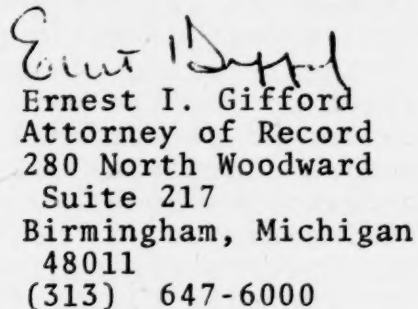 Ernest I. Gifford
Attorney of Record
280 North Woodward
Suite 217
Birmingham, Michigan
48011
(313) 647-6000